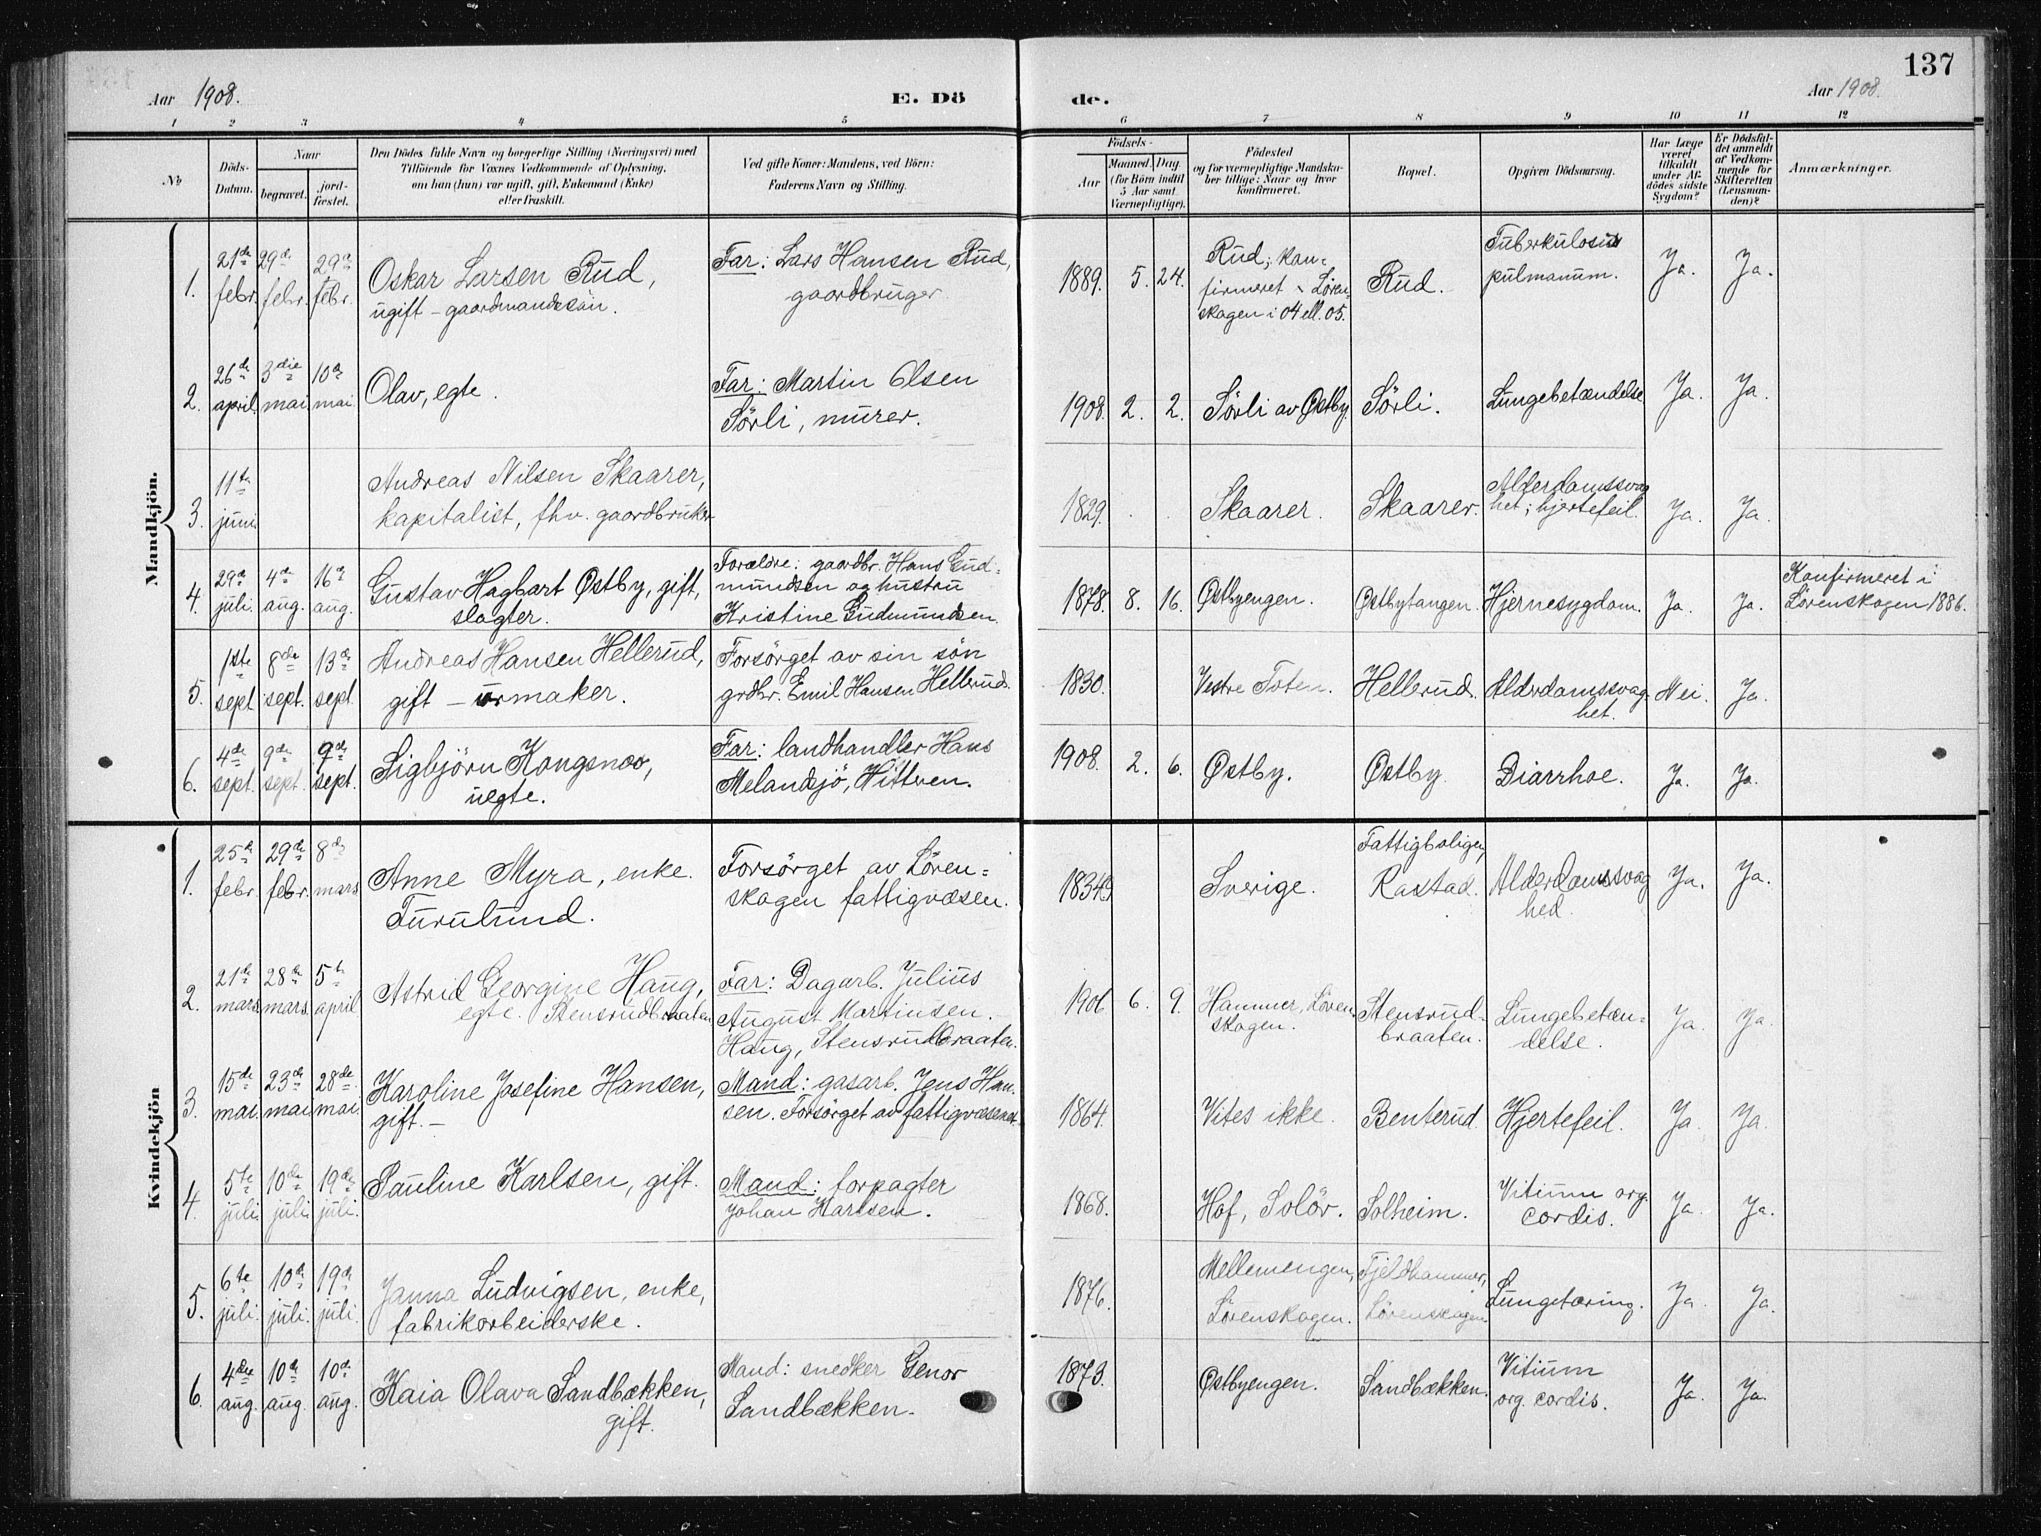 137
Aar 1908.
E. Dö
de.
Aar 1908.
1 2 3 4 5 6 7 8 9 10 11 12
No
Döds-
Datum.
Naar
begravet.
jord-
fæstet.
Den Dödes fulde Navn og borgerlige Stilling (Næringsvei) med
Tilföiende for Voxnes Vedkommende af Oplysning,
om han (hun) var ugift, gift, Enkemand (Enke)
eller fraskilt.
Ved gifte Koner: Mandens, ved Börn:
Faderens Navn og Stilling.
Födsels-
Aar
Maaned. Dag.
(for Börn indtil
5 Aar samt
Værnepligtige).
Födested
og for værnepligtige Mandska-
ber tillige: Naar og hvor
konfirmeret.
Bopæl.
Opgiven Dödsaarsag.
Har Læge
været
tilkaldt
under Af-
dödes sidste
Sygdom?
Er Dödsfal-
det anmeldt
af Vedkom-
mende for
Skifteretten
(Lensman-
den)?
Anmærkninger.
Mandkjön.
1. 21de febr. 29de febr. 29de febr.
Oskar Larsen Rud,
ugift - gaardmandssön.
Far: Lars Hansen Rud,
gaardbruger.
1889. 5. 24.
Rud; kon-
firmeret i Lören-
skogen i 04 ell. 05.
Rud.
Tuberkulosis
pulmanum.
Ja. Ja.
2. 26de april. 3die mai 10de mai.
Olav, egte.
Far: Martin Olsen
Sörli, murer.
1908. 2. 2. Sörli av Østby. Sörli. Lungebetændelse Ja. Ja.
3. 11te juni
Andreas Nilsen Skaarer,
kapitalist, fhv. gaardbruker
1829. Skaarer. Skaarer.
Alderdomssvag
het; hjertefeil.
Ja. Ja.
4. 29de juli. 4de aug. 16de aug.
Gustav Hagbart Østby, gift,
slagter.
Forældre: gaardbr. Hans Gud-
mundsen og hustru
Kristine Gudmundsen.
1878. 8. 16. Østbyengen. Østbytangen. Hjernesygdom. Ja. Ja.
Konfirmeret i
Lörenskogen 1886.
5. 1ste sept. 8de sept. 13de sept.
Andreas Hansen Hellerud,
gift - urmaker.
Forsörget av sin sön
grdbr. Emil Hansen Hellerud.
1830. Vestre Toten. Hellerud.
Alderdomssvag
het.
Nei. Ja.
6. 4de sept. 9de sept. 9de sept.
Sigbjörn Kongsmoo,
uegte.
Far: landhandler Hans
Melandsjö, Hittren.
1908. 2. 6. Østby. Østby. Diarrhoe. Ja. Ja.
Kvindekjön
1. 25de febr. 29de febr. 8de mars
Anne Myra, enke.
Furulund.
Forsörget av Lören-
skogen fattigvæsen.
1834. Sverige.
Fattigboligen,
Rastad.
Alderdomssvag
hed.
Ja. Ja.
2. 21de mars. 28de mars. 5te april
Astrid Georgine Haug,
egte. Stensrudbraaten
Far: Dagarb. Julius
August Martinsen.
Haug, Stensrudbraaten.
1906 6. 9.
Hammer, Lören-
skogen.
Stensrud-
braaten.
Lungebetæn-
delse.
Ja. Ja.
3. 15de mai. 23de mai. 28de mai.
Karoline Josefine Hansen,
gift. -
Mand: gasarb. Jens Han-
sen. Forsörget av fattigvæsenet.
1864. Vites ikke. Benterud. Hjertefeil. Ja. Ja.
4. 5te juli. 10de juli. 19de juli.
Pauline Karlsen, gift.
Mand: forpagter
Johan Karlsen.
1868. Hof, Solör. Solheim.
Vitium org.
cordis.
Ja. Ja.
5. 6te juli. 10de juli. 19de juli.
Janna Ludvigsen, enke,
fabrikarbeiderske.
1876.
Mellemengen,
Lörenskogen.
Fjeldhammer,
Lörenskogen
Lungetæring. Ja. Ja.
6. 4de aug. 10de aug. 10de aug.
Kaia Olava Sandbækken,
gift.
Mand: snedker Genor
Sandbækken.
1873. Østbyengen. Sandbækken.
Vitium
org. cordis.
Ja. Ja.